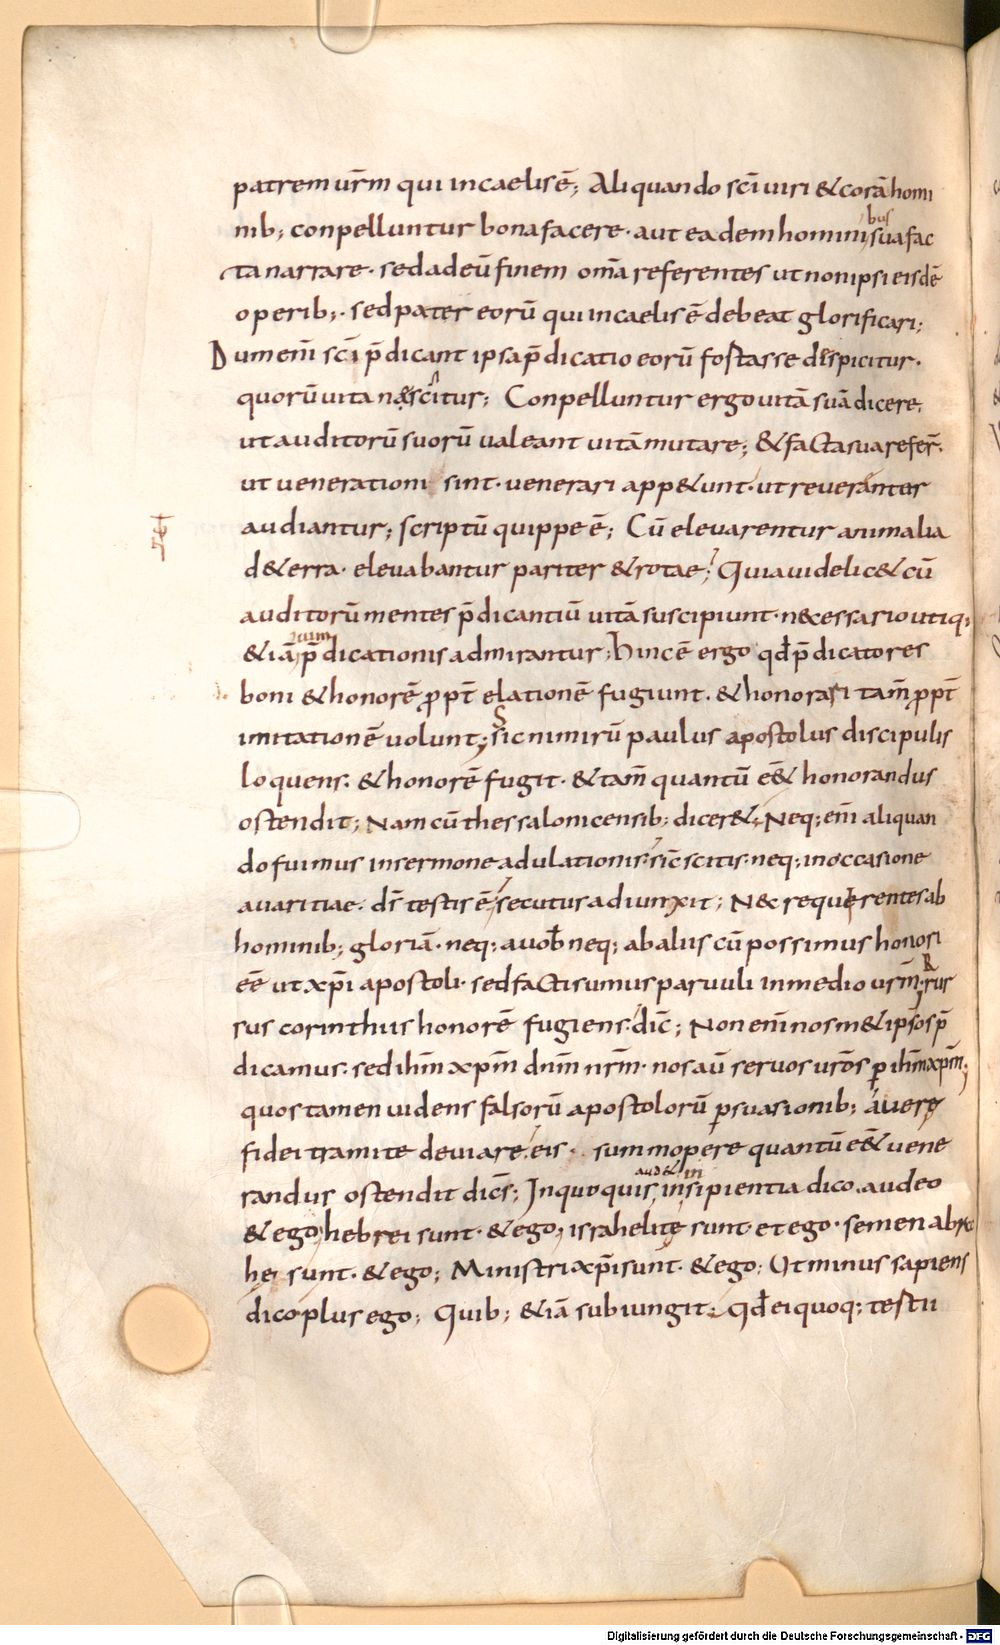 patrem ur̄m qui incaelis ē; Aliquando sc̄i uiri & corā homi
nib; conpelluntur bona facere · aut eadem homini bus sua fac
ta narrare · sed ad eū finem om̄a referentes ut non ipsi eisdē
operib; · sed pater eorū qui incaelis ē debeat glorificari;
Dum eni̅ sc̄i p̄dicant ipsa p̄dicatio eorū fostasse despicitur ·
quorū uita nescitur; Conpelluntur ergo uitā suā dicere,
ut auditorū suorū ualeant uitā mutare; & facta sua refer̄ ·
ut uenerationi sint · uenerari app&unt · ut reuerantur
audiantur; scriptū quippe ē; Cū eleuarentur animalia
d&erra · eleuabantur pariter & rotae; Quia uidelic& cū
auditorū mentes p̄dicantiū uitā suscipiunt · necessario utiq;
& iā uim p̄dicationis admirantur; Hinc ē ergo qđ p̄dicatores
boni & honorē ꝓpt̄ elationē fugiunt · & honorari tam̄ ꝓpt̄
imitationē uolunt; Sic nimirū paulus apostolus discipulis
loquens · & honorē fugit · & tam̄ quantū e&̄ honorandus
ostendit; Nam cū thessalonicensib; dicer& · Neq; eni̅ aliquan
do fuimus in sermone adulationis · sic̄ scitis · neq; in occasione
auaritiae · ds̄ testis ē secutus adiunxit; Nec requirentes ab
hominib; gloriā · neq; a uob̄ neq; ab aliis cū possimus honori
eē ut xp̄i apostoli · sed facti sumus paruuli in medio urm̄ · Rur
sus corinthiis honorē fugiens · dic̄; Non eni̅ nosm&ipsos p̄
dicamus · sed ihm̄ xpm̄ dnm̄ nrm̄ · nos aū seruos uros̄ ꝑ ihm̄ xpm̄;
quos tamen uidens falsorū apostolorū ꝑsuasionib; a uere
fidei tramite deuiare · eis · summopere quantū e&̄ uene
randus ostendit dic̄s; In quo quis aud& in insipientia dico · audeo
& ego hebrei sunt · & ego; israhelite sunt et ego · semen abra
hei sunt · & ego; Ministri xp̄i sunt · & ego; Ut minus sapiens
dico plus ego; Quib; & iā subiungit · Qđ ei quoq; testii
Digitalisierung gefördert durch die Deutsche Forschungsgemeinschaft - DFG